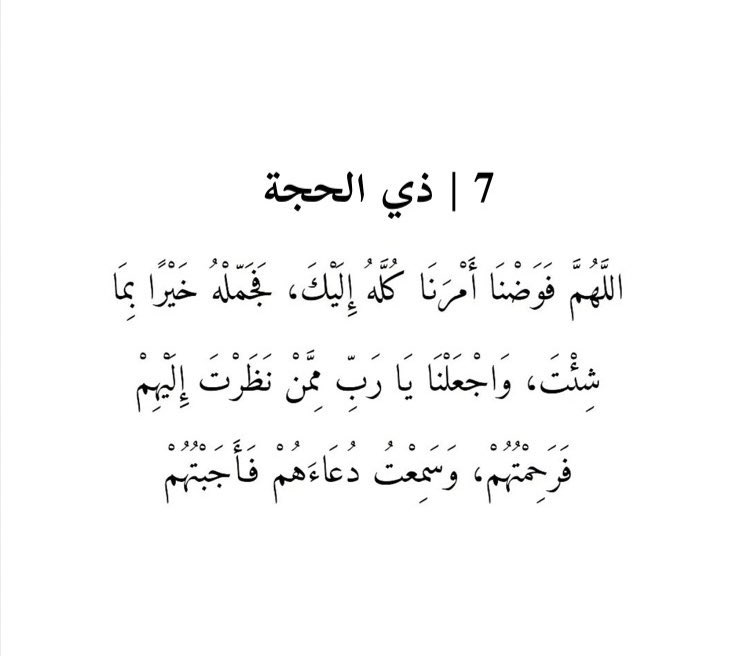 7 | ذي الحجة
اللَّهُمَّ فَوَضْنَا أَمْرَنَا كُلَّهُ إِلَيْكَ، فَجَمّلْهُ خَيْرًا بِمَا
شِئْتَ، وَاجْعَلْنَا يَا رَبِّ مِمَّنْ نَظَرْتَ إِلَيْهِمْ
فَرَحِمْتُهُمْ، وَسَمِعْتُ دُعَاءَهُمْ فَأَجَبْتُهُمْ